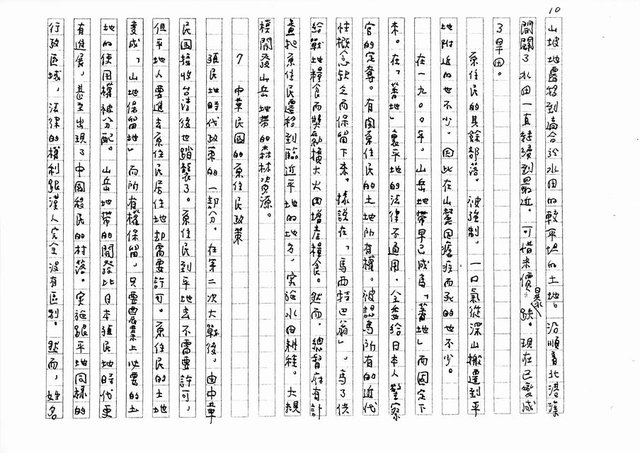 10
山坡地遷移到適合於水田的較平坦的土地。沿順著北港溪
開闢了水田一直繼續到最近,可惜米價暴跌。現在已變成
了旱田。
原住民的其餘部落,被強制,一口氣從深山搬遷到平
地附近的也不少。因此在山麓因瘧疾而死的也不少。
在一九〇〇年,山岳地帶早已成為「蕃地」而固定下
來。在「蕃地」裏平地的法律不適用,全委給日本人警察
官的定奪。有關原住民的土地所有權,彼認為所有的近代
性概念缺乏而保留下來。據說在「馬西特巴翁」,為了供
給戰地糧食而獎勵擴大火田增產糧食。然而,總督府有計
畫地原住民遷移到臨近平地的地方,實施水田耕種。大規
模開發山岳地帶的森林資源。
7 中華民國的原住民政策
殖民地時代政策的一部分,在第二次大戰後,由中華
民國接收台灣後也踏襲了。原住民到平地去不需要許可,
但平地人要進去原住民居住地却需要許可。原住民的土地
變成「山地保留地」而所有權保留,只要農業上必要的土
地的使用權被分配。山岳地帶的開發比日本殖民地時代更
有進展,甚至出現了中國移民的村落。實施跟平地同樣的
行政區域,法律的權利跟漢人完全沒有區別。然而,姓名